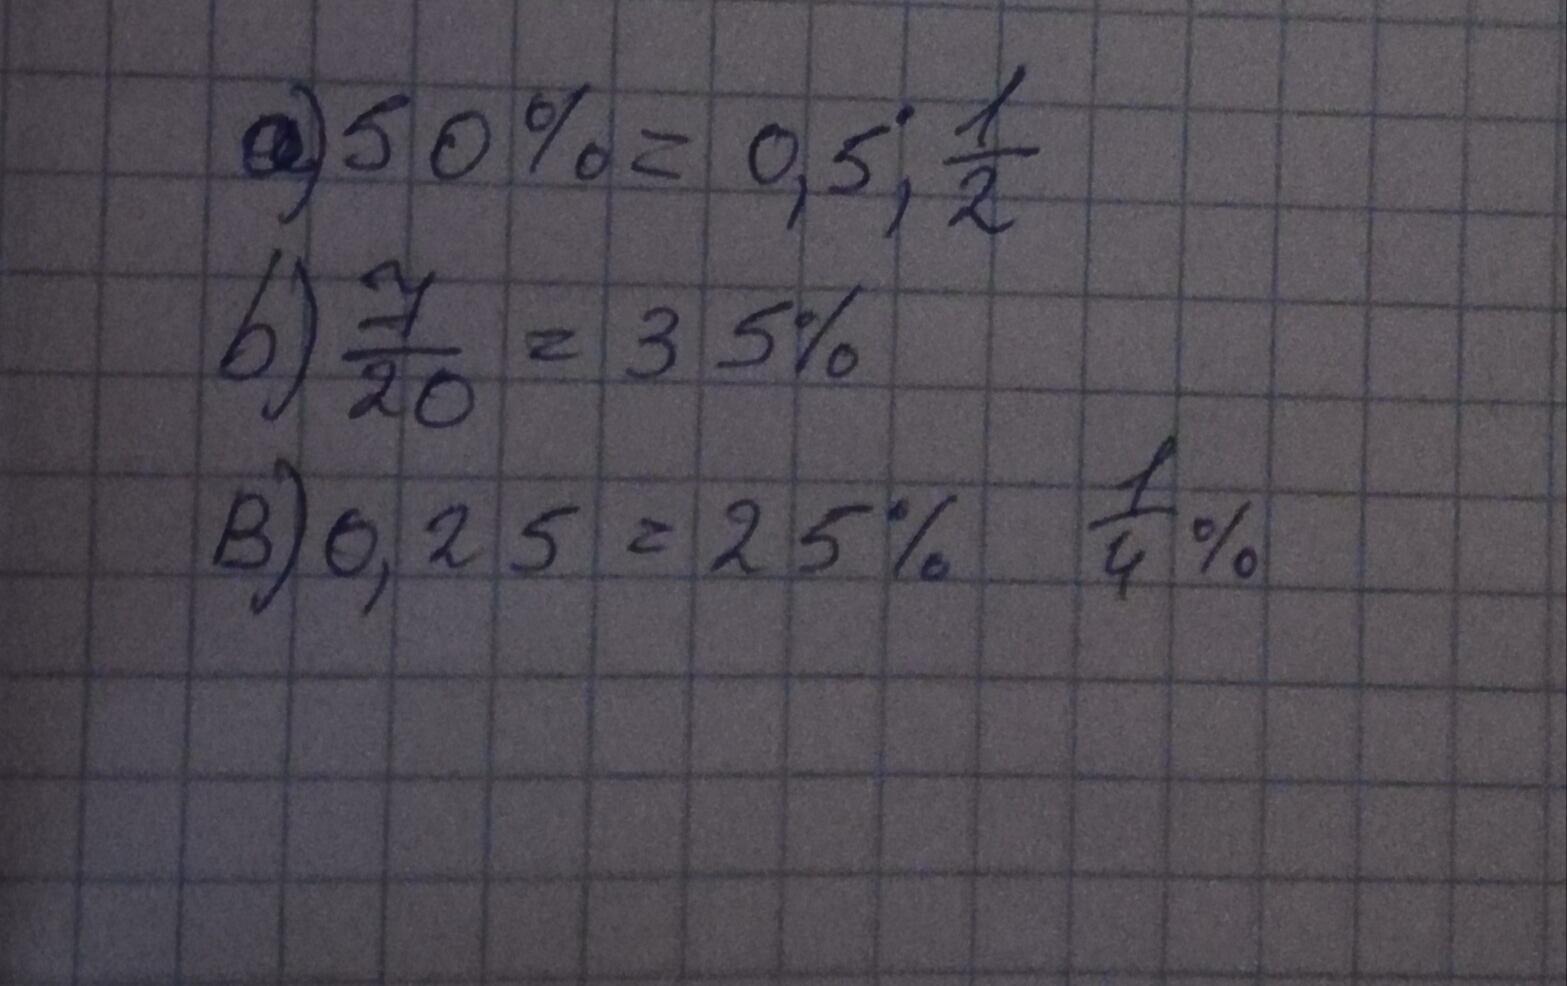 a) 50% = 0,5; 1/2
b) 7/20 = 35%
B) 0,25 = 25% 1/4%